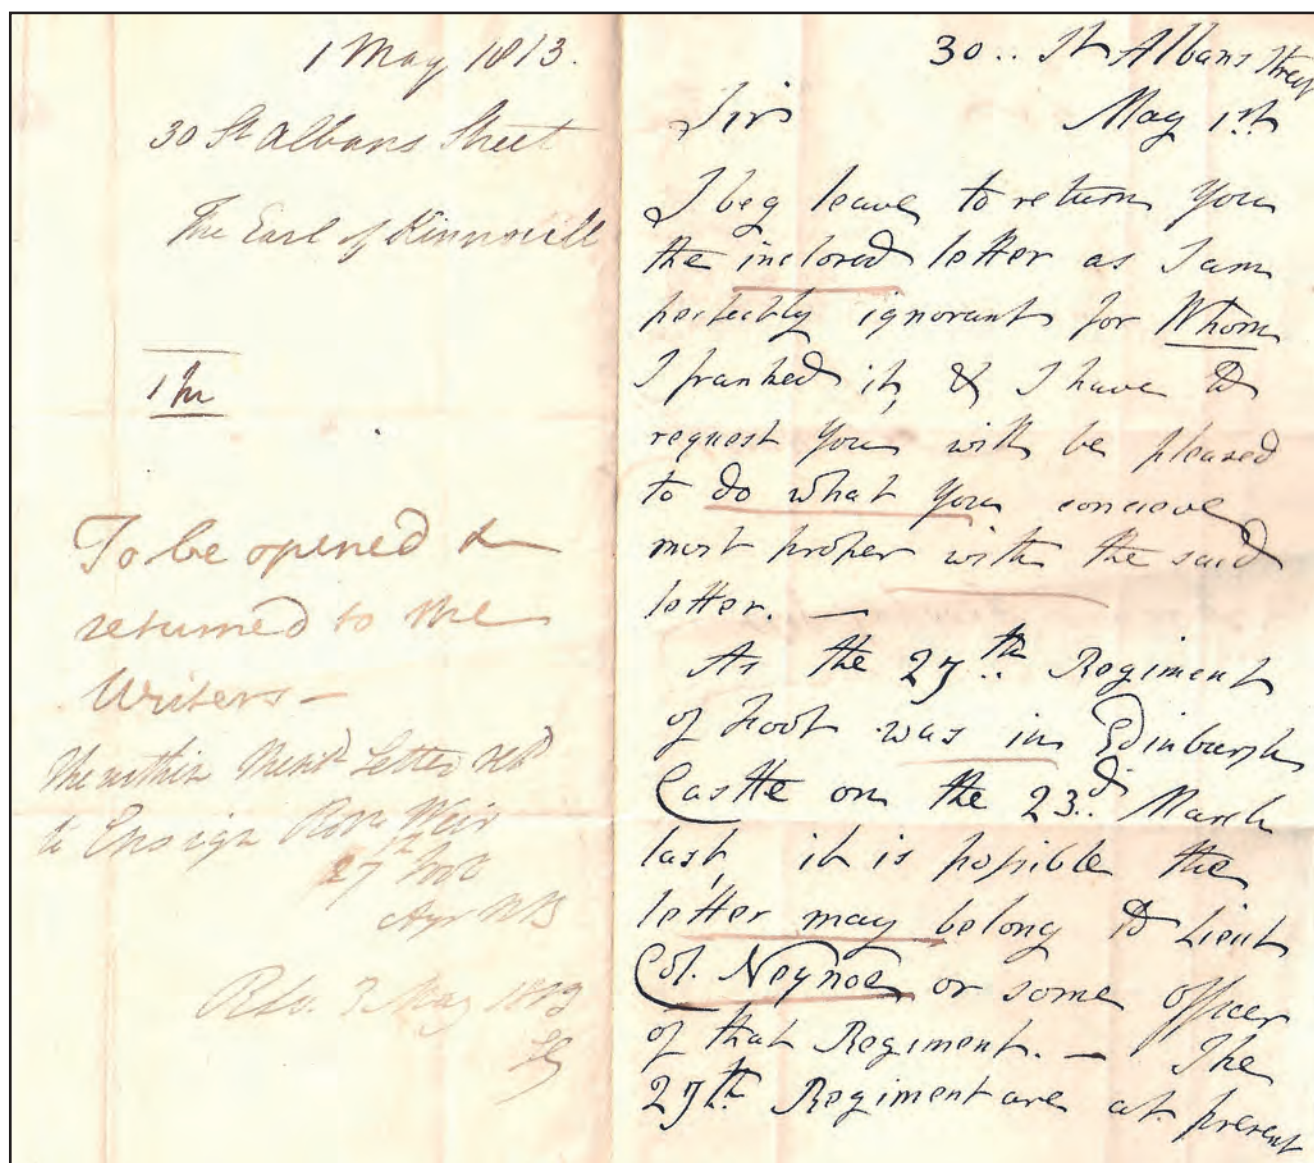 1 May 1813.
30 St Albans Street
The Earl of Kinnoull
To be opened &
returned to the
Writers –
The within Ment'd Letter ret'd
to Ensign Weir
27th Foot
Ayr NB
3 May 1813
30.. St Albans Street
May 1st
Sir
I beg leave to return You
the inclosed letter as I am
perfectly ignorant for Whom
I franked it, & I have to
request You will be pleased
to do what You conceive
most proper with the said
letter. —
As the 27th.. Regiment
of foot was in Edinburgh
Castle on the 23d.. March
last, it is possible the
letter may belong to Lieut
Col. Neynoe or some officer
of that Regiment. — The
27th.. Regiment are at present